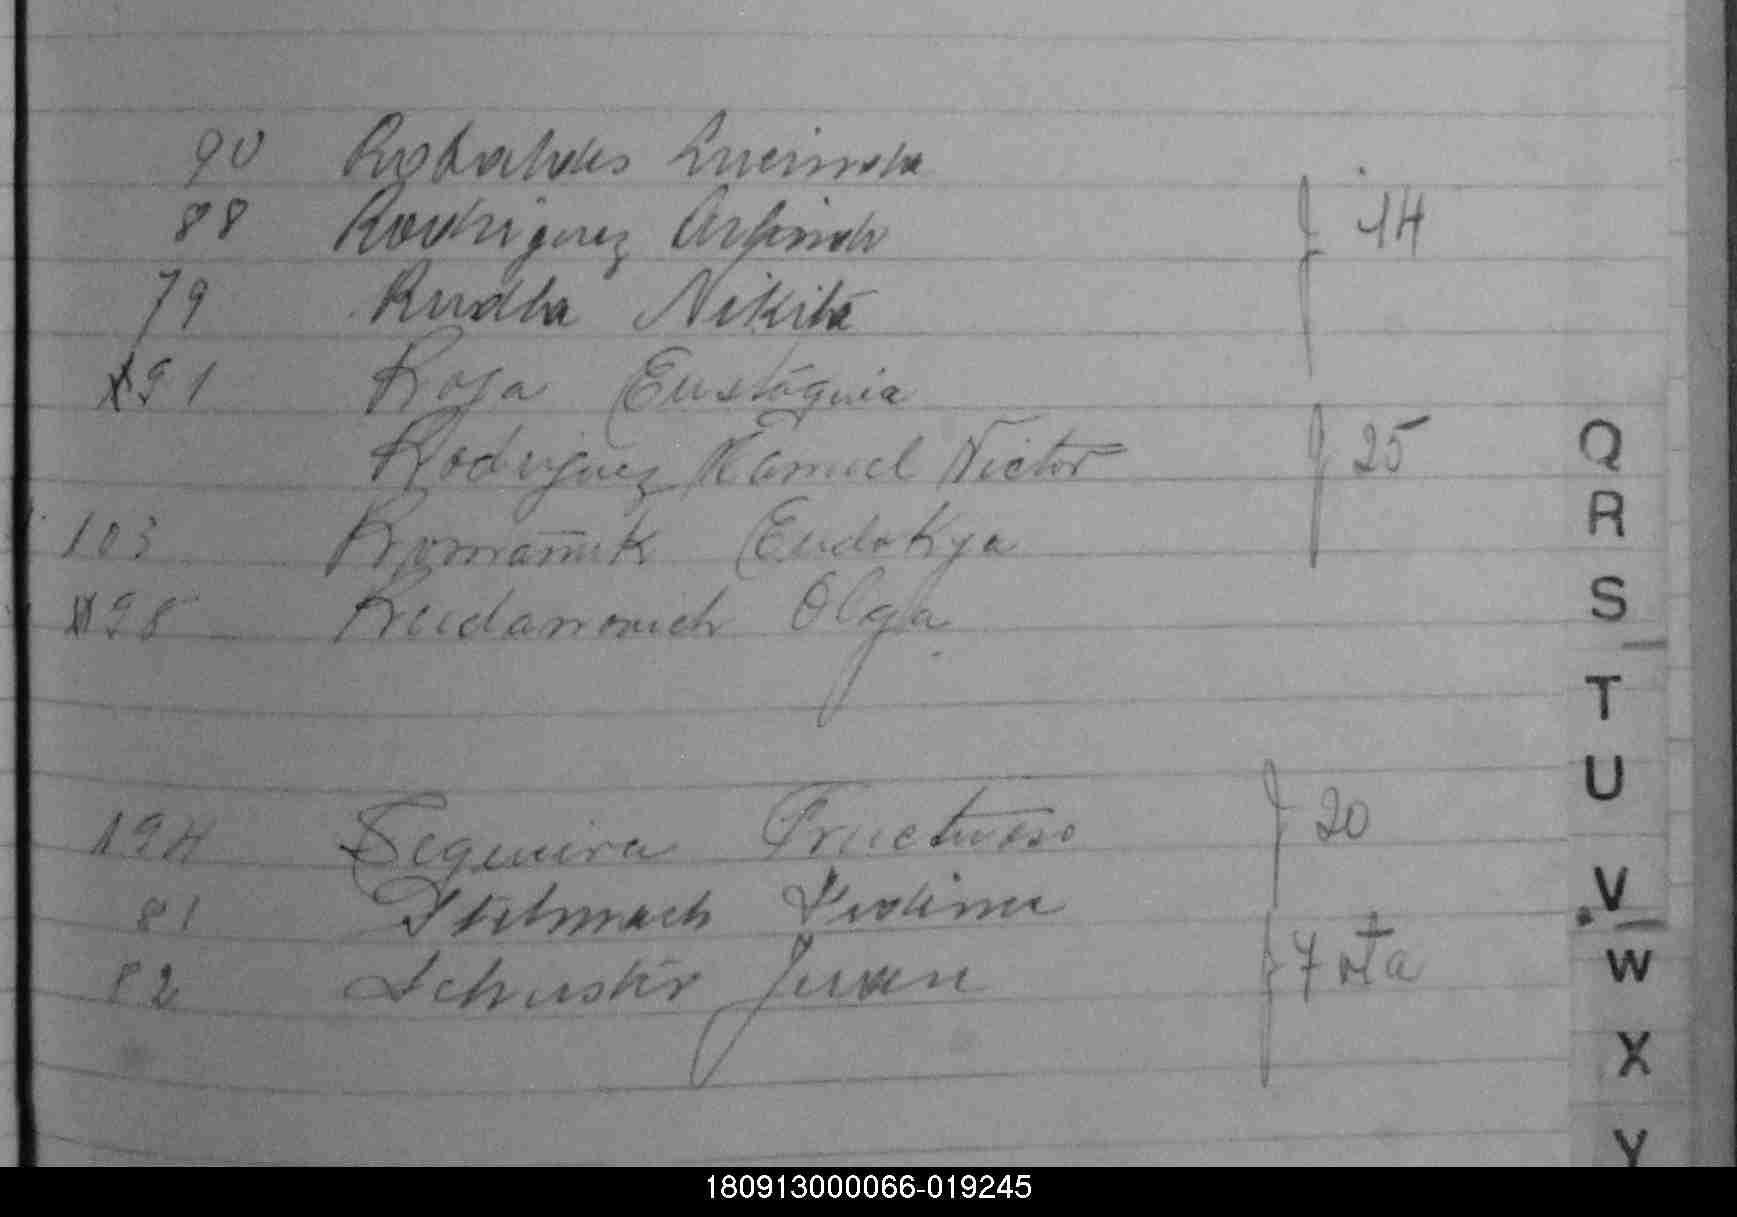 90 Robaldes Lucinda
88 Rodriguez Arsindo 14
79 Rudba Nikita
X91 Roja Eustáquia
Rodriguez Ramuel Victor 25
103 Romaniuk Eudokya
98 Olga
194 Sequeira Fructuoso 20
81 Stelmach
82 Schuster Juan 7
Q
R
S
T
U
V
W
X
Y
180913000066-019245